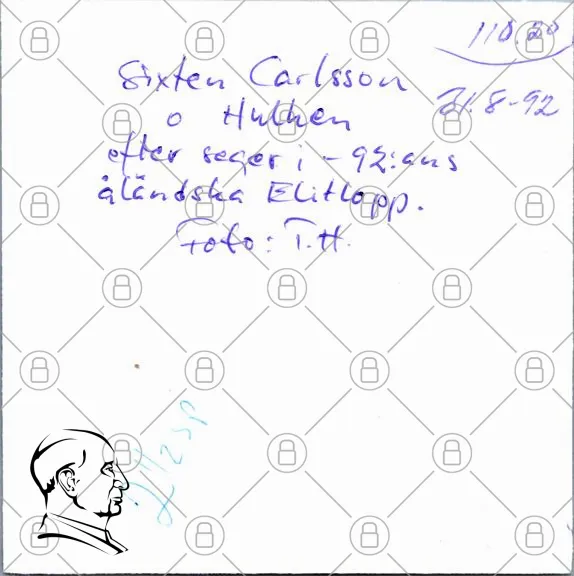 110,50
31.8-92
Sixten Carlsson
o Hulken
efter seger i -92:ans
åländska Elitlopp.
Foto: T.H.